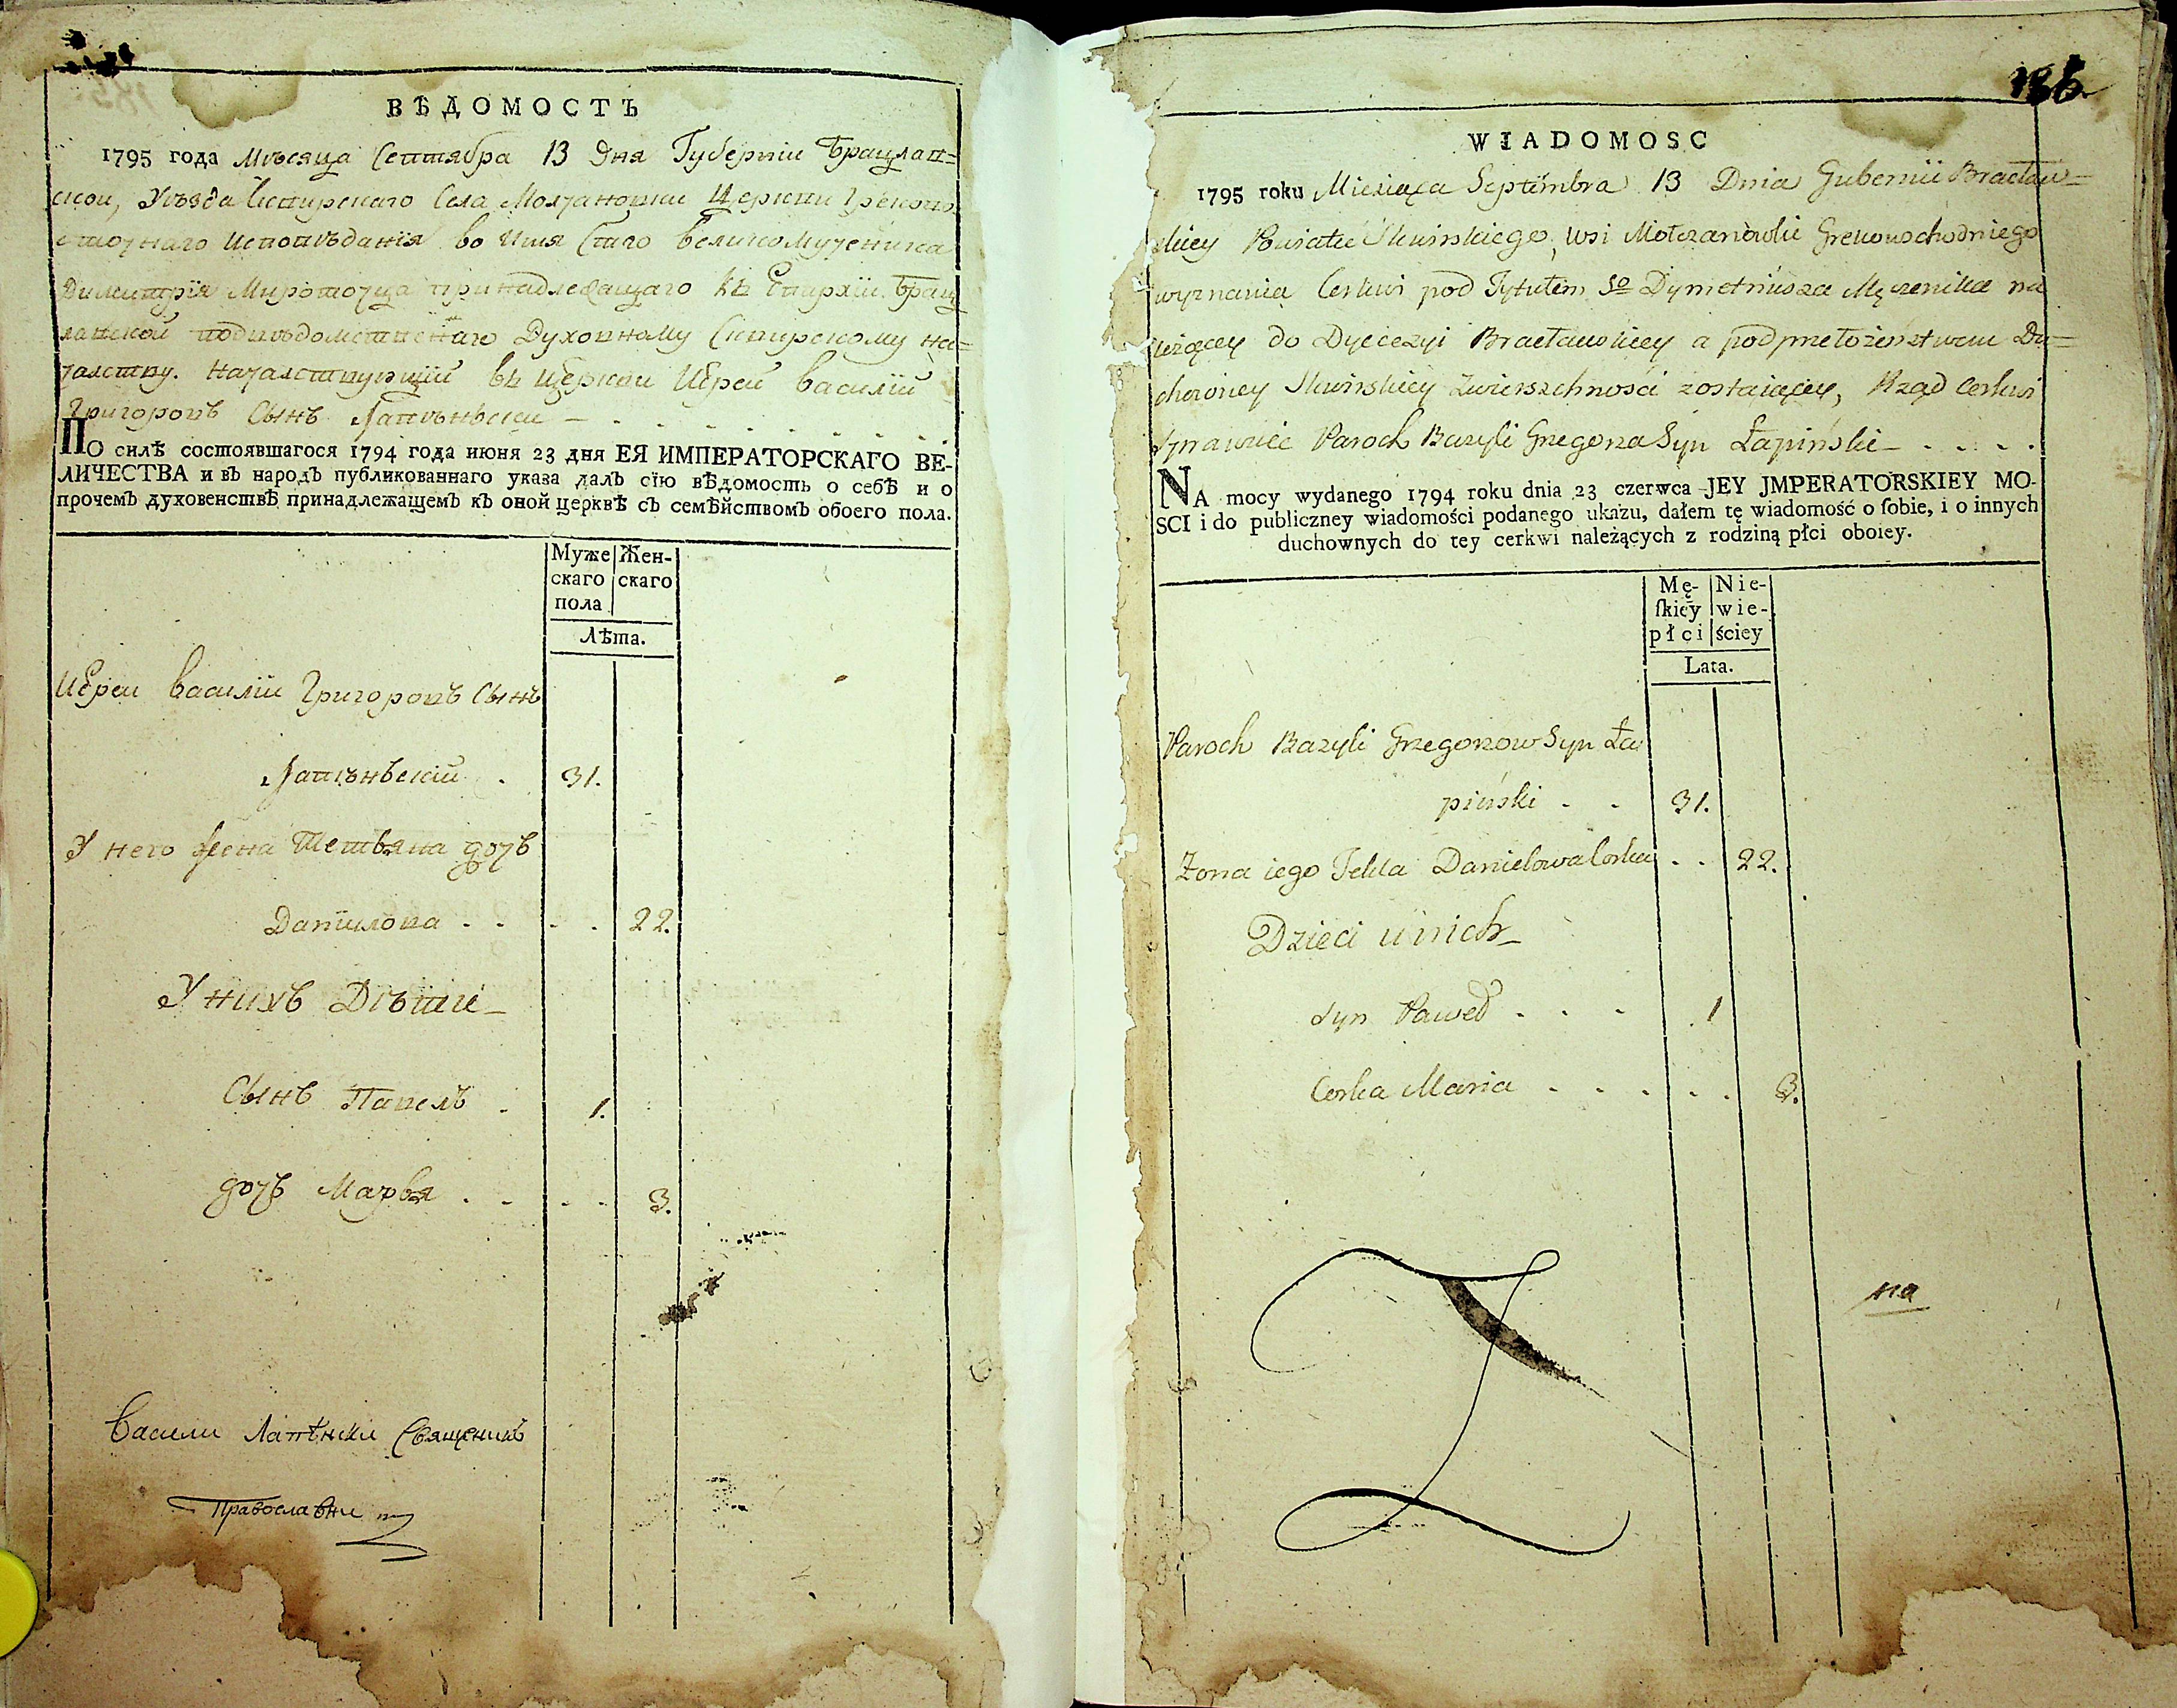 ВѢДОМОСТЬ
1795 года Мѣсяца Септября 13 дня Губерніи Брацлав=
скои, Уѣзда Сквирскаго Села Молчановки Церкви Греково
сточнаго Исповѣданія во Имя Стаго великомученика
Димитрія Мироточца принадлежащаго къ Епархіи Брац
лавской подвѣдомственаго Духовному Сквирскому на=
чалству. Началствующій въ Церкви Іерей Василій
Григоровъ Сынъ Лапѣньскій – . . . . . . . .
ПО силѣ состоявшагося 1794 года июня 23 дня ЕЯ ИМПЕРАТОРСКАГО ВЕ-
ЛИЧЕСТВА и въ народъ публикованнаго указа далъ сїю вѣдомость о себѣ и о
прочемъ духовенствѣ принадлежащемъ къ оной церквѣ съ семѣйствомъ обоего пола.
Муже Жен-
скаго скаго
пола
Лѣта.
Іереи Василіи Григоровъ Сынъ
Лапѣньскій . 31.
У него жена Тетьяна дочь
Данилова . . . . 22.
У нихъ Дѣти –
Сынъ Павелъ . 1.
дочь Марья . . . . 3.
Васили Лапѣнски Священикъ
Православни
186.
WIADOMOSC
1795 roku Miesiąca Septembra 13 Dnia Gubernii Bracław=
skiey Powiatu Skwirskiego, wsi Mołczanowki Grekowschodniego
wyznania Cerkwi pod Tytułem So Dymetriusza Męczenika na
leżącey do Dyecezyi Bracławskiey a pod przełożeństwem Du=
chowney Skwirskiey Zwierzchności zostaiącey, Rząd Cerkwi
Sprawuiec Paroch Bazyli Grzegorza Syn Łapiński – . . . .
NA mocy wydanego 1794 roku dnia 23 czerwca JEY JMPERATORSKIEY MO-
SCI i do publiczney wiadomości podanego ukazu, dałem tę wiadomość o ſobie, i o innych
duchownych do tey cerkwi należących z rodziną płci oboiey.
Mę- Nie-
ſkiey wie-
płci ściey
Lata.
Paroch Bazyli Grzegorzow Syn Ła
piński . . 31.
Żona iego Tekla Danielowa Corka . . 22.
Dzieci u nich –
Syn Paweł . . . . 1
Corka Maria . . . . . 3.
na